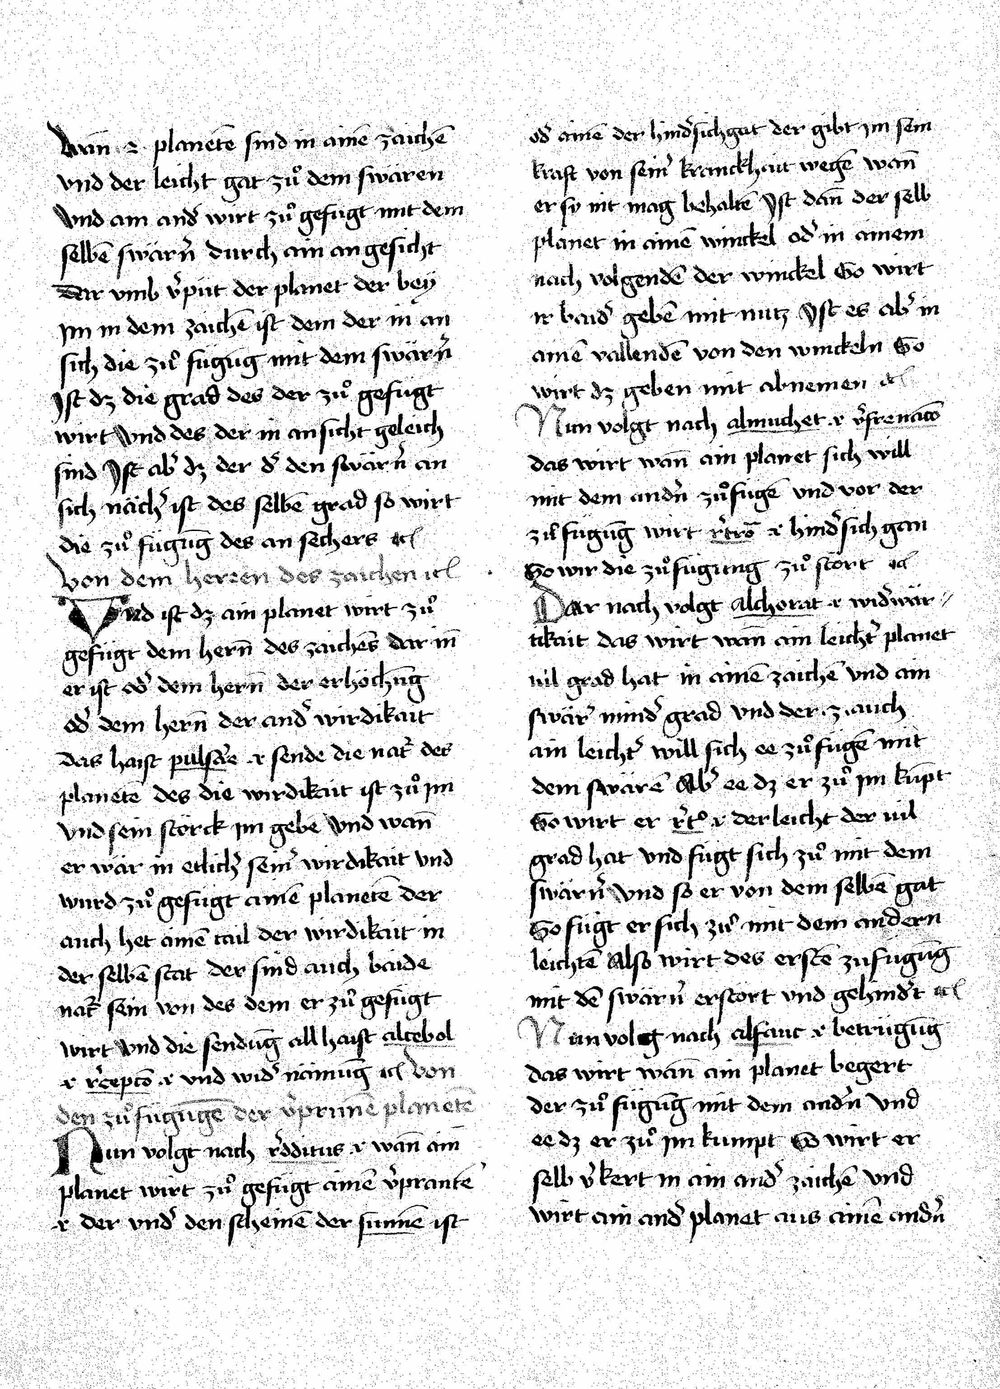 Wan̄ ·2· planetē sind in ainē zaichē
vnd der leicht gat zuͦ dem swären
Vnd am and͛ wirt zuͦ gefugt mit dem
selbē swärn͛ durch ain angesicht
Dar vmb v͛püt der planet der bey
Im in dem zaichē ist dem der in an
sich die zuͦ fügūg mit dem swärn͛
Ist dz die grad des der zuͦ gefugt
wirt Vnd des der in ansicht geleich
sind Ist ab͛ dz der d͛ den swärn͛ an
sich näch͛ ist des selbē grad so wirt
die zuͦ fügūg des an sechers ꝛcͭ
Von dem herren des zaichen ꝛcͭ
Vnd ist dz ain planet wirt zuͦ
gefügt dem hern̄ des zaichēs dar in̄
er ist od͛ dem hern̄ der erhöchūg
od͛ dem hern̄ der and͛ wirdikait
Das haist pulsar͛e ·r· sende die nat͛ des
planetē des die wirdikait ist zuͦ im
Vnd sein störck im gebe Vnd wan̄
er wär in etlich͛ sein͛ wirdikait vnd
wurd zuͦ gefügt ainē planetē der
auch het ainē tail der wirdikait in
der selbē stat der sind auch baide
nat͛ sein von des dem er zuͦ gefügt
wirt Vnd die sendūg all haist alcebol
·r· r͛cepcō ·r· vnd wid͛ nämūg ꝛcͭ Von
den zuͦ fügūgē der v͛prunē planetē
Nun volgt nach r͛dditus ·r· wan̄ ain
planet wirt zuͦ gefügt ainē v͛prantē
·r· der vnd͛ den scheinē der sunnē ist
od͛ ainē der hind͛sichgat der gibt im sein
kraft von sein͛ kranckhait wegē wan̄
er sy nit mag behaltē Ist dan̄ der selb
planet in ainē winckel od͛ in ainem
nach volgendē der winckel So wirt
ir baid͛ gebē mit nutz Ist es ab͛ in
ainē vallendē von den winckeln So
wirt dz geben mit abnemen ꝛcͭ
Nun volgt nach almuchet ·r· r͛frenacō
das wirt wan̄ ain planet sich will
mit dem andn͛ zuͦfugē vnd vor der
zuͦ fügūg wirt r͛tro ·r· hind͛sich gan
So wir die zuͦfügung zuͦ stört ꝛcͭ
Dar nach volgt alchorat ·r· wid͛wär⸗
tikait das wirt wan̄ ain leicht͛ planet
uil grad hat in ainē zaichē vnd ain
swär͛ mind͛ grad vnd der ·2· auch
ain leicht͛ will sich ee zuͦfügē mit
dem swärē Ab͛ ee dz er zuͦ im kūpt
So wirt er r͛tͦ ·r· der leicht der uil
grad hat vnd fügt sich zuͦ mit dem
swärn͛ Vnd so er von dem selbē gat
So fügt er sich zuͦ mit dem andern
leichtē Also wirt des erstē zufügūg
mit dē swärn͛ erstört vnd gehind͛t ꝛcͭ
Nun volgt nach alfaut ·r· betrügūg
das wirt wan̄ ain planet begert
der zuͦ fügūg mit dem andn͛ vnd
ee dz er zuͦ im kumpt So wirt er
selb v͛kert in ain and͛ zaichē vnd
wirt ain and͛ planet aus ainē andn͛